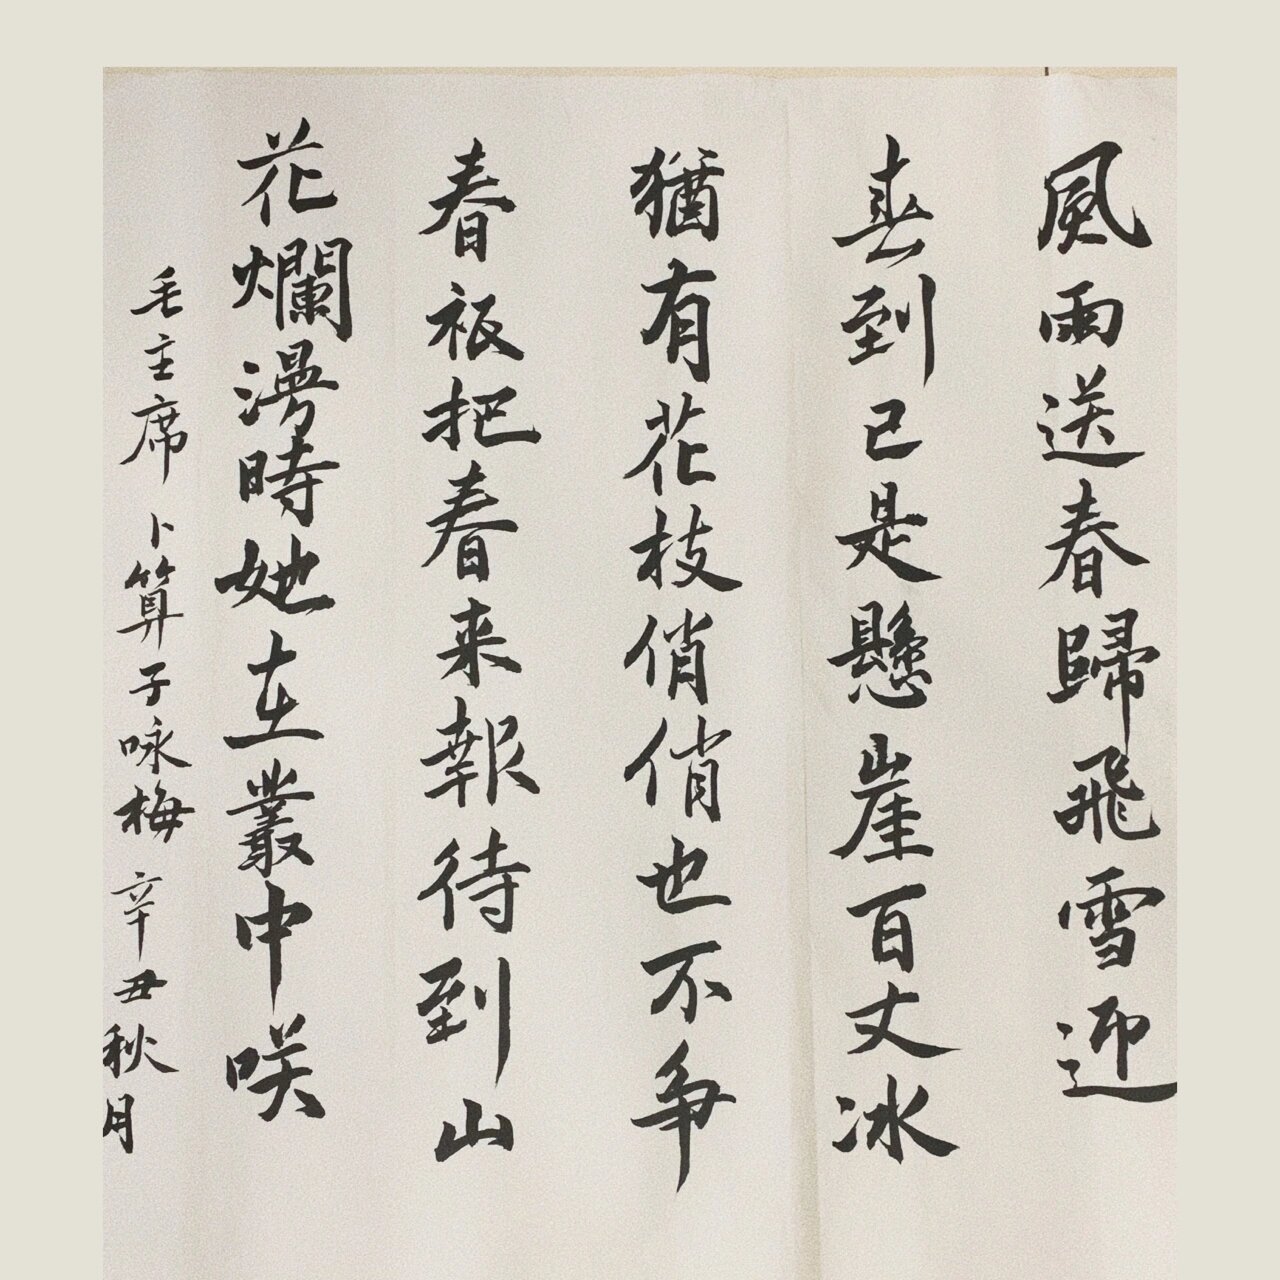 風雨送春歸飛雪迎
春到已是懸崖百丈冰
猶有花枝俏俏也不争
春祇把春来報待到山
花爛漫時她在叢中咲
毛主席卜算子咏梅辛丑秋月